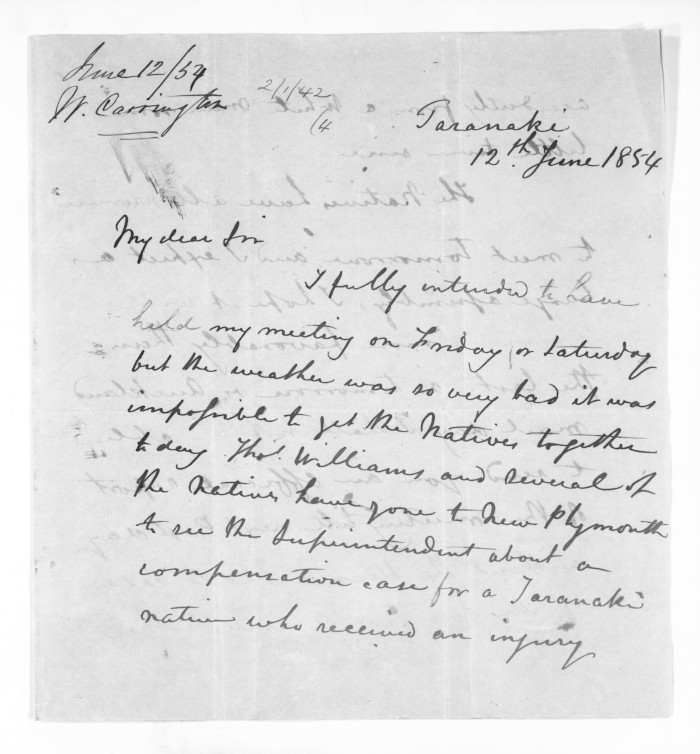 June 12/54
W. Carrington
2/1/42
/4
Taranaki
12th June 1854
My dear Sir
I fully intended to have
held my meeting on Friday, or Saturday
but the weather was so very bad it was
impossible to get the Natives together
to day Thos. Williams and several of
the Natives have gone to New Plymouth
to see the Superintendent about a
compensation case for a Taranaki
native who received an injury